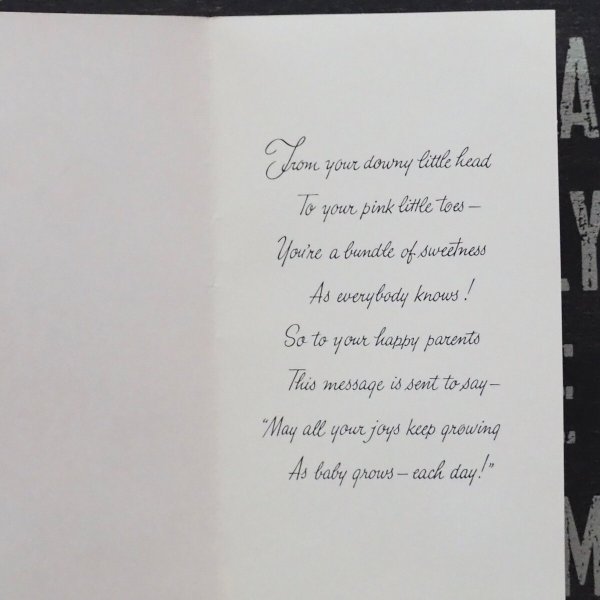 From your downy little head
To your pink little toes—
You're a bundle of sweetness
As everybody knows!
So to your happy parents
This message is sent to say—
"May all your joys keep growing
As baby grows—each day!"
A
LY
E
M